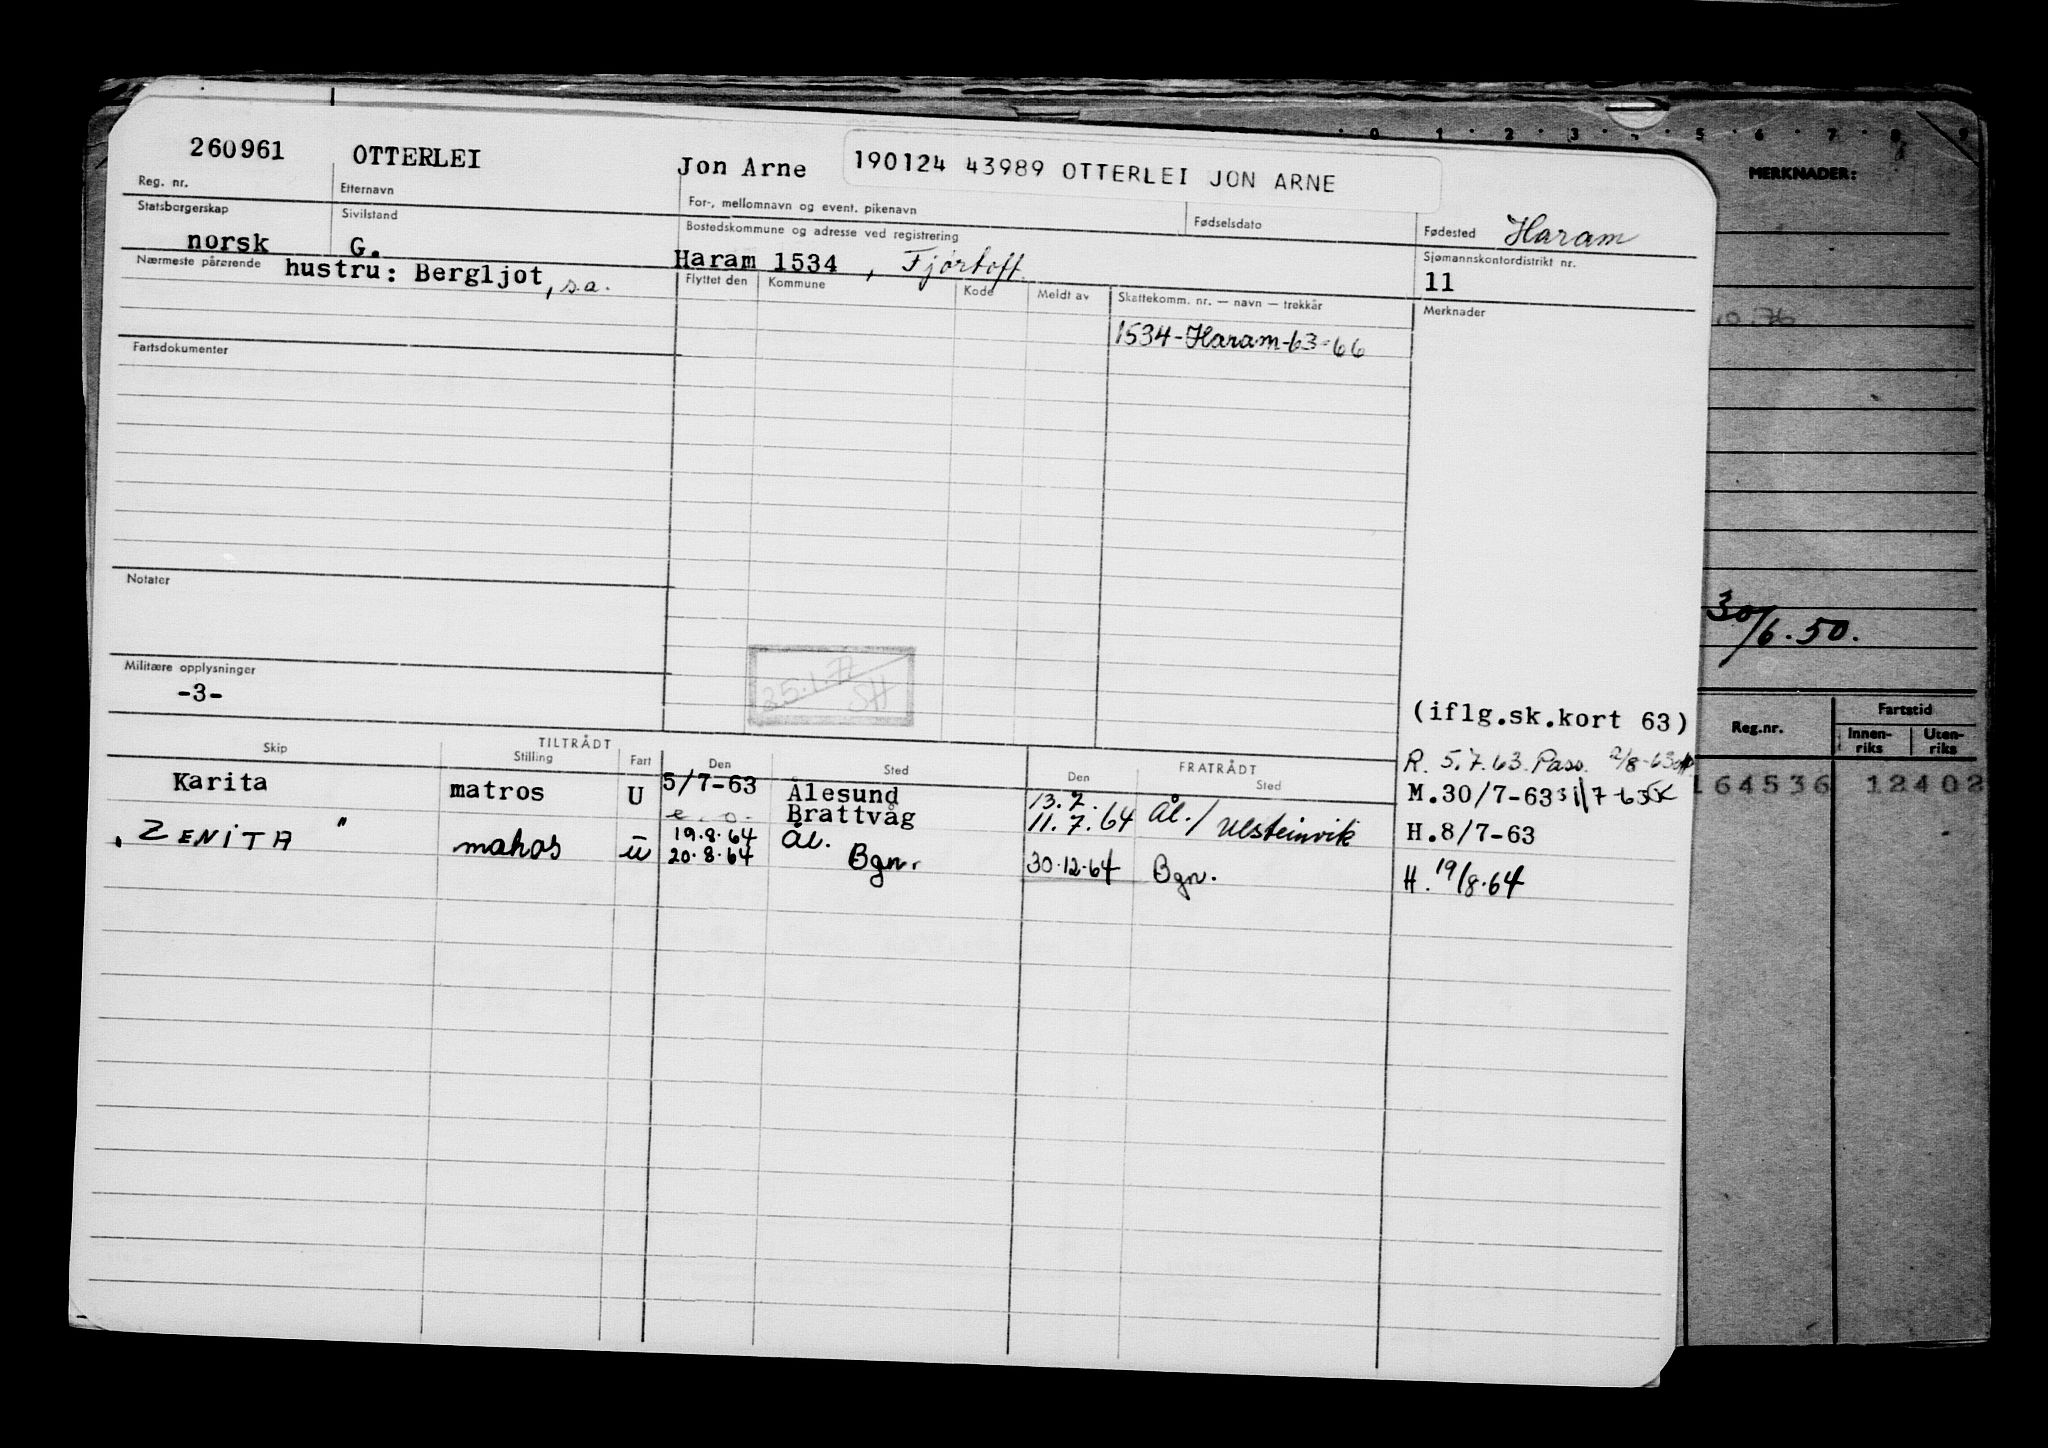 0 1 2 3 4 5 6 7 8 9
MERKNADER:
260961 OTTERLEI Jon Arne 190124 43989 OTTERLEI JON ARNE
Reg. nr. Etternavn For-, mellomnavn og event. pikenavn Fødselsdato Fødested Haram
Statsborgerskap Sivilstand Bostedskommune og adresse ved registrering Sjømannskontordistrikt nr.
norsk G. Haram 1534, Fjørtoft 11
Nærmeste pårørende hustru: Bergljot, s.a. Flyttet den Kommune Kode Meldt av Skattekomm. nr. — navn — trekkår Merknader
1534-Haram-63-66
Fartsdokumenter
Notater
30/6.50.
Militære opplysninger
-3-
25.1.72
SH
(iflg.sk.kort 63)
Reg.nr. Fartstid
Innenriks Utenriks
TILTRÅDT FRATRÅDT
Skip Stilling Fart Den Sted Den Sted
R. 5.7.63. Pass. 2/8-63
Karita matros U 5/7-63 Ålesund 13.7. Ål./ M.30/7-63 31/7-63
e. o. Brattvåg 11.7.64 Ulsteinvik H.8/7-63
"ZENITA" matros U 19.8.64 Ål.
20.8.64 Bgn. 30.12.64 Bgn. H. 19/8.64
164536 12402